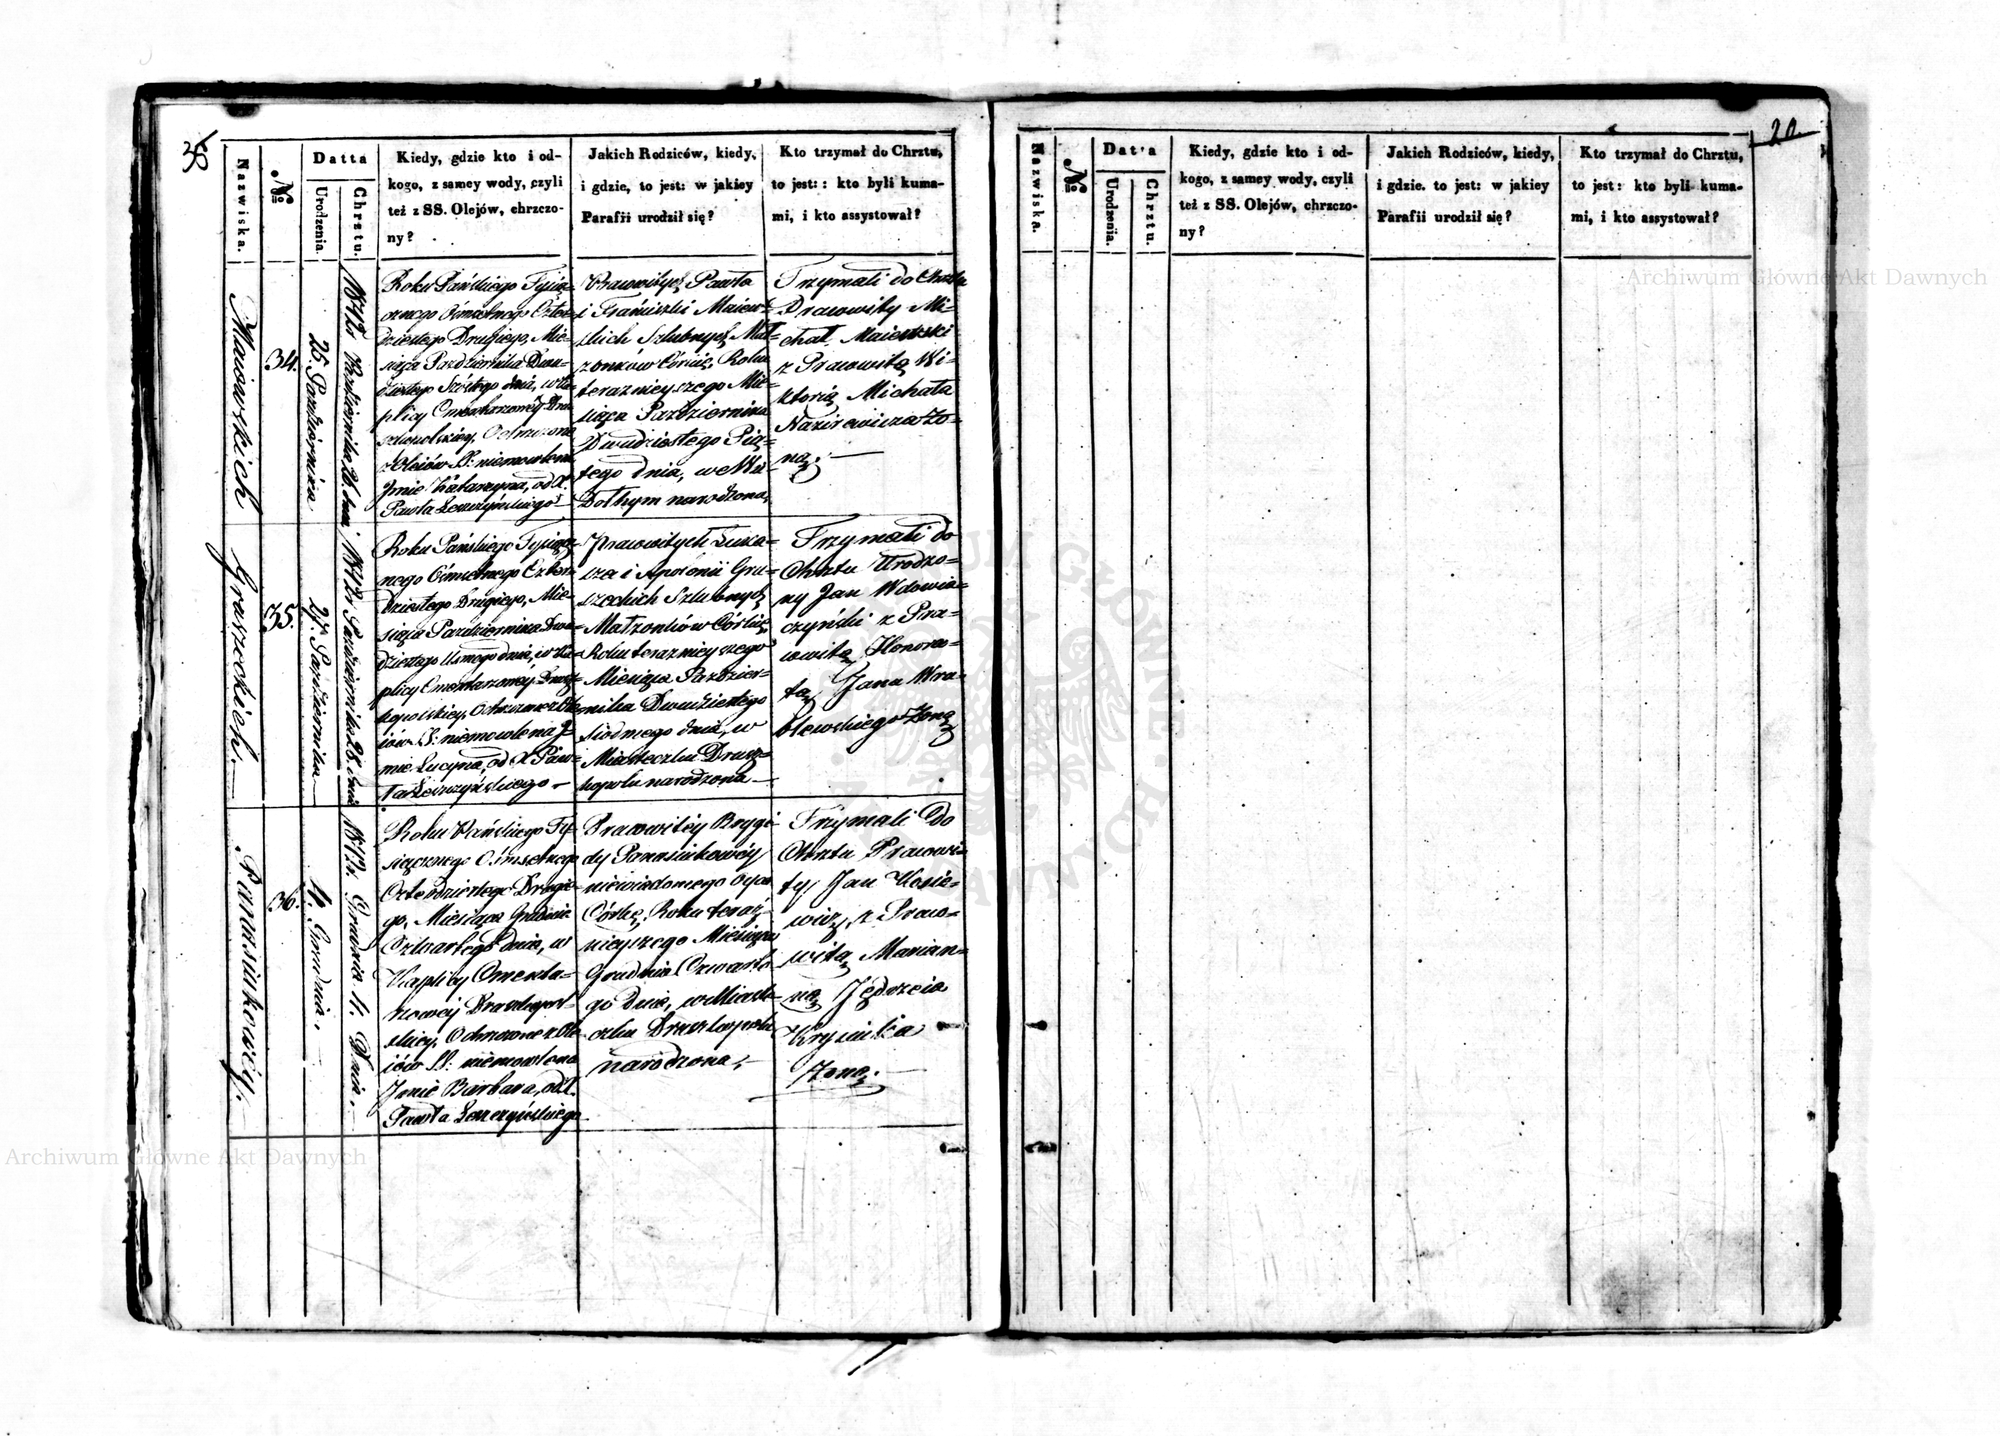 38
Nazwiska.
№
Datta
Urodzenia.
Chrztu.
Kiedy, gdzie kto i od-
kogo, z samey wody, czyli
też z SS. Olejów, chrzczo-
ny?
Jakich Rodziców, kiedy,
i gdzie, to jest: w jakiey
Parafii urodził się?
Kto trzymał do Chrztu,
to jest: kto byli kuma-
mi, i kto assystował?
Maiewskich
34.
25. Października
1842. Października 26. dnia
Roku Pańskiego Tysią-
cznego Ośmsetnego Czter-
dziestego Drugiego, Mie-
siąca Października Dwu-
dziestego Szóstego dnia, w Ka-
plicy Cmentarzowey Drusz-
kopolskiey, Ochrzczone
z Oleiów SS: niemowlę na
Jmie Katarzyna, od X.
Pawła Leszczyńskiego
Prawowitych Pawła
i Franciszki Maiew-
skich Szlubnych Mał-
żonków Córkę, Roku
teraznieyszego Mie-
siąca Października
Dwudziestego Pią-
tego dnia, we Wsi
narodzona,
Trzymali do Chrztu
Pracowity Mi-
chał Maiewski
z Pracowitą Wi-
ktorią Michała
Żo-
ną.
Gruszeckich.
35.
27. Października
1842. Października 28. dnia
Roku Pańskiego Tysiącz-
nego Ośmsetnego Czter-
dziestego Drugiego, Mie-
siąca Października Dwu-
dziestego Usmego dnia, w Ka-
plicy Cmentarzowey Drusz-
kopolskiey, Ochrzczone z Ole-
iów S: niemowlę na J-
mie Lucyna, od X Paw-
ła Leszczyńskiego
Pracowitych Łuka-
sza i Apolonii Gru-
szeckich Szlubnych
Małżonków Córkę,
Roku teraznieyszego
Miesiąca Paździer-
nika Dwudziestego
siódmego dnia, w
Miasteczku Drusz-
kopolu narodzona
Trzymali do
Chrztu Urodzo-
ny Jan Wdowia-
czyński z Pra-
cowitą Honora-
tą Jana Wra-
blewskiego Żoną
Panasiukowéy.
36.
4. Grudnia.
1842. Grudnia 4. Dnia.
Roku Pańskiego Ty-
siącznego Ośmsetnego
Czterdziestego Drugie-
go, Miesiąca Grudnia
Czwartego dnia, w
Kaplicy Cmenta-
rzowéy Druszkopol-
skiey, Ochrzczone z Ole-
iów SS: niemowlę na
Jmie Barbara, od X.
Pawła Leszczyńskiego
Pracowitéy Brygi-
dy Panasiukowéy
niewiadomego Oyca
Córkę, Roku teraź-
nieyszego Miesiąca
Grudnia Czwarte-
go Dnia, w Miaste-
czku Druszkopolu
narodzona,
Trzymali do
Chrztu Pracowi-
ty Jan
z Praco-
witą Marian-
ną Jędrzeia
Żoną.
20
Nazwiska.
№
Datta
Urodzenia.
Chrztu.
Kiedy, gdzie kto i od-
kogo, z samey wody, czyli
też z SS. Olejów, chrzczo-
ny?
Jakich Rodziców, kiedy,
i gdzie. to jest: w jakiey
Parafii urodził się?
Kto trzymał do Chrztu,
to jest: kto byli kuma-
mi, i kto assystował?
Archiwum Główne Akt Dawnych
Archiwum Główne Akt Dawnych